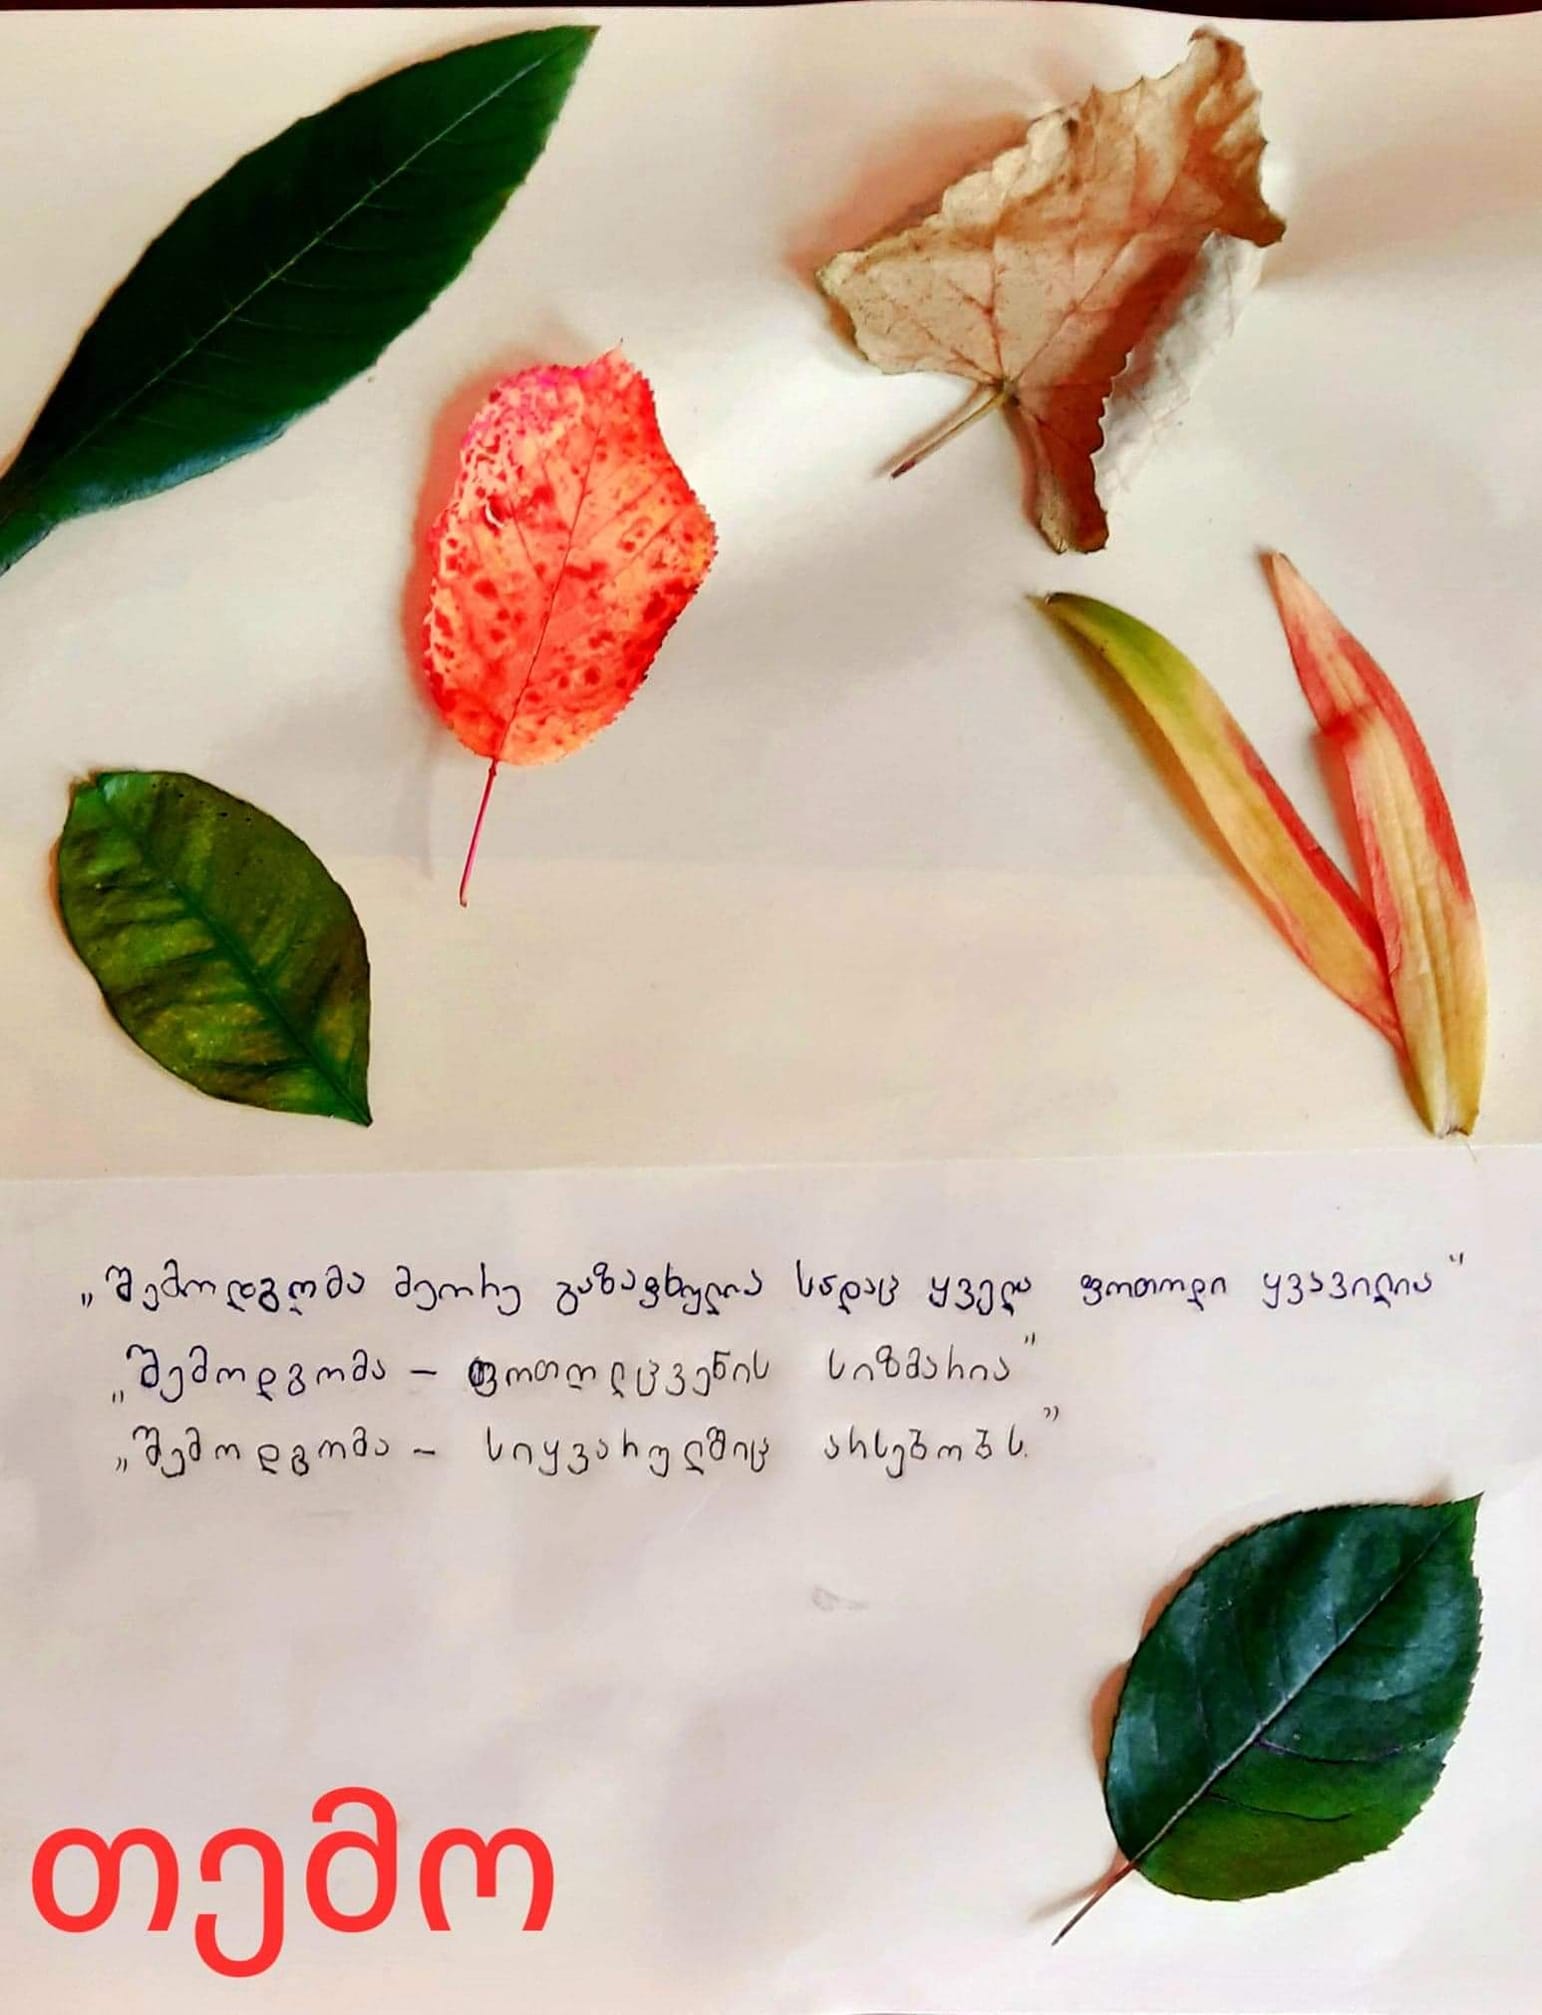 „შემოდგომა მეორე გაზაფხულია სადაც ყველა ფოთოლი ყვავილია"
„შემოდგომა – ფოთოლცვენის სიზმარია"
„შემოდგომა – სიყვარულშიც არსებობს."
თემო